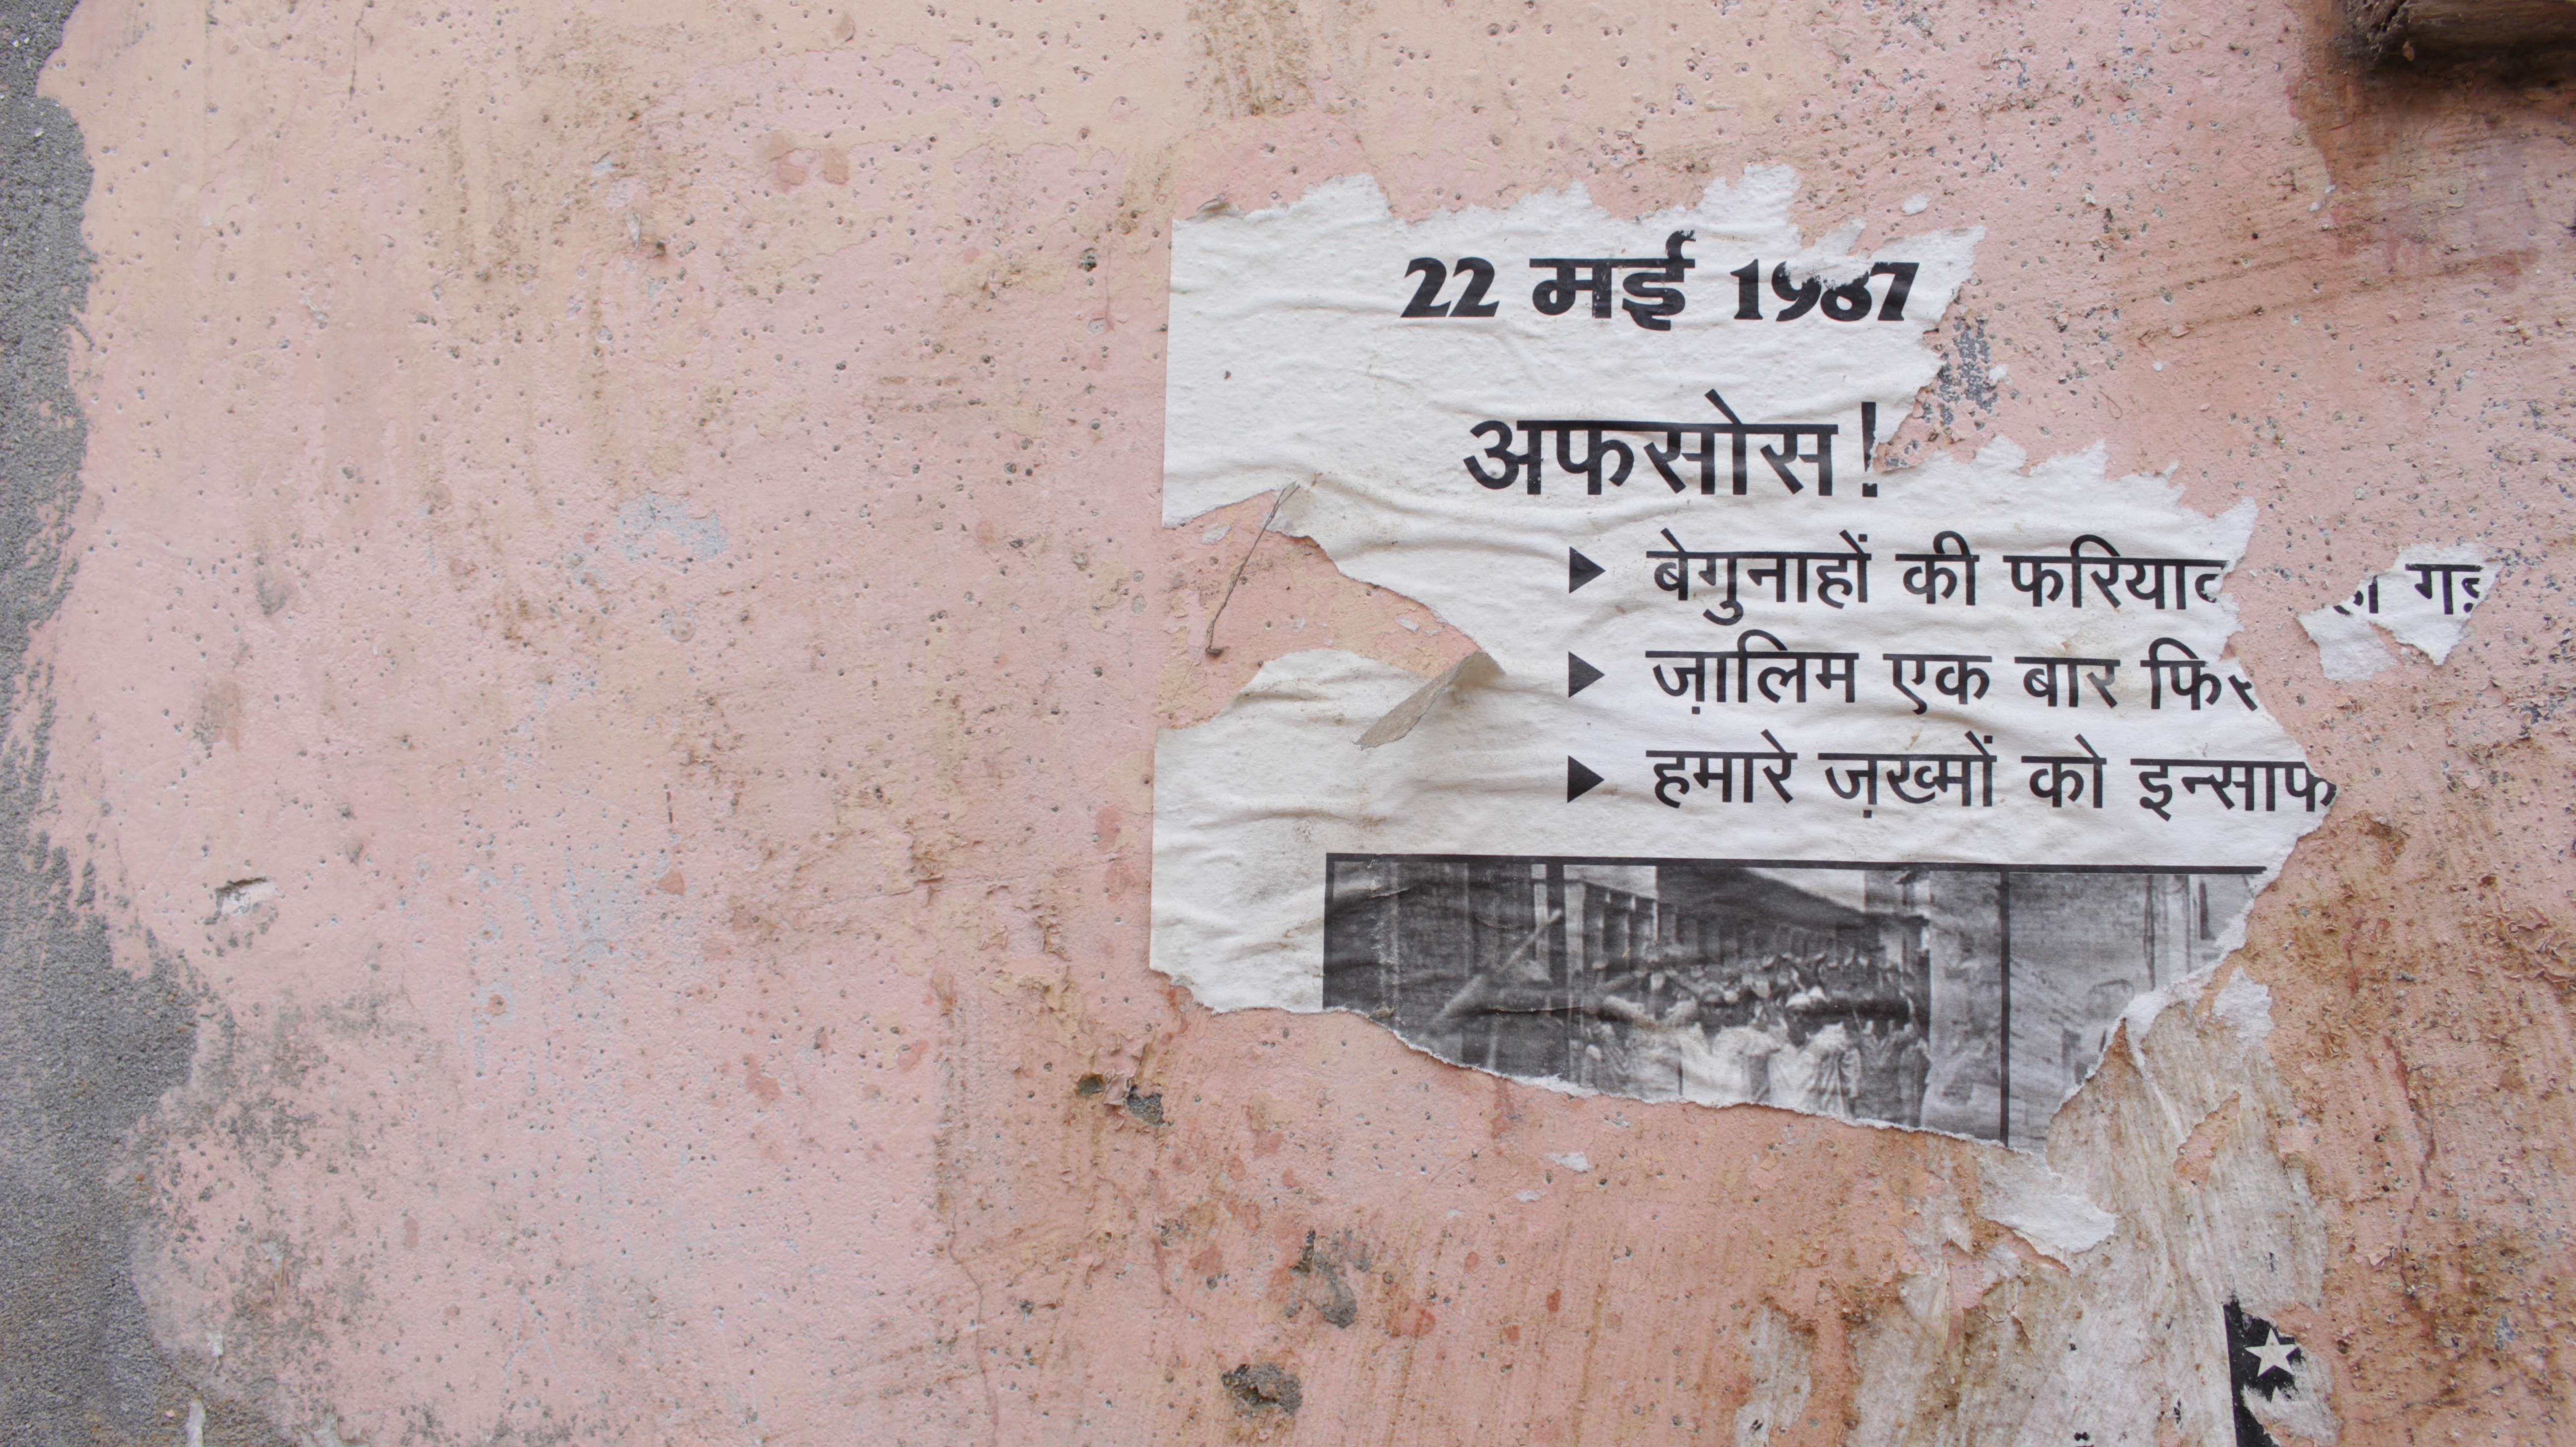 22 मई 1987
अफसोस!
▶ बेगुनाहों की फरियाद
▶ ज़ालिम एक बार फिर
▶ हमारे ज़ख्मों को इन्साफ